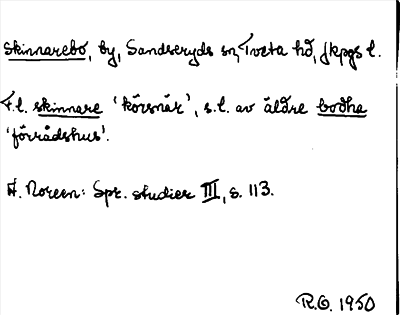 Skinnarebo, by, Sandseryds sn, Tveta hd, Jkpgs l.
F.l. skinnare 'körsnär', s.l. av äldre bodha
'förrådshus'.
A. Noreen: Spr. studier III, s. 113.
R.O. 1950